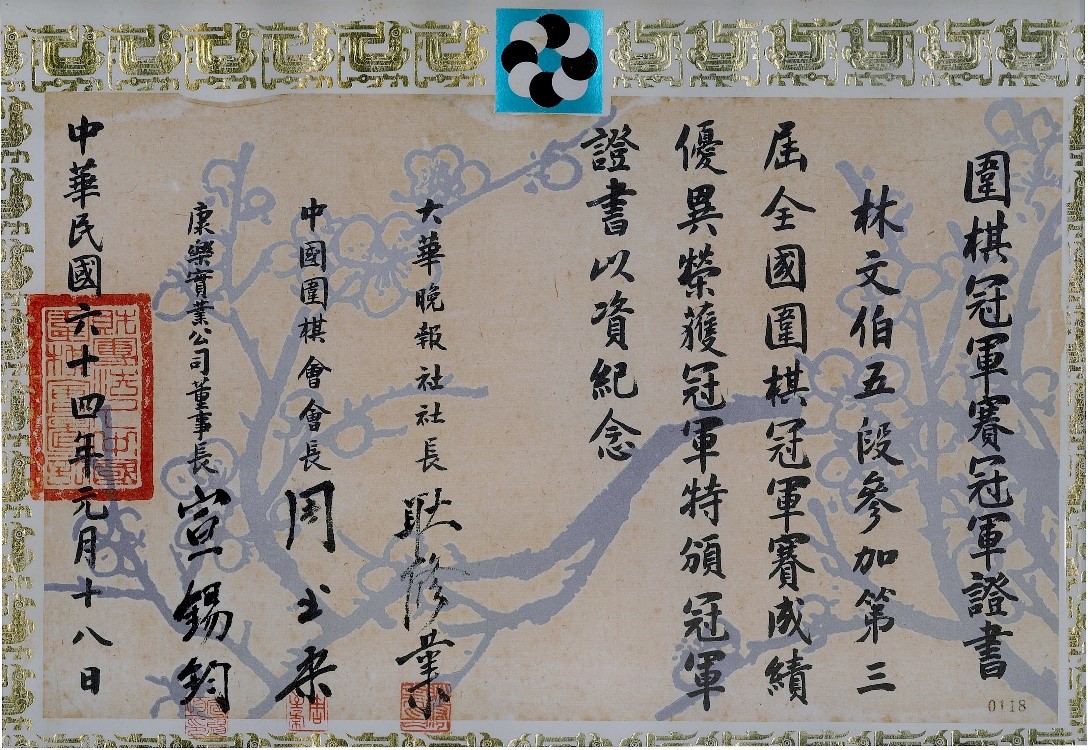 圍棋冠軍賽冠軍證書
林文伯五段參加第三
屆全國圍棋冠軍賽成績
優異榮獲冠軍特頒冠軍
證書以資紀念
大華晚報社社長 耿修業
中國圍棋會會長 周至柔
康樂實業公司董事長 宣錫鈞
中華民國六十四年元月十八日
0118